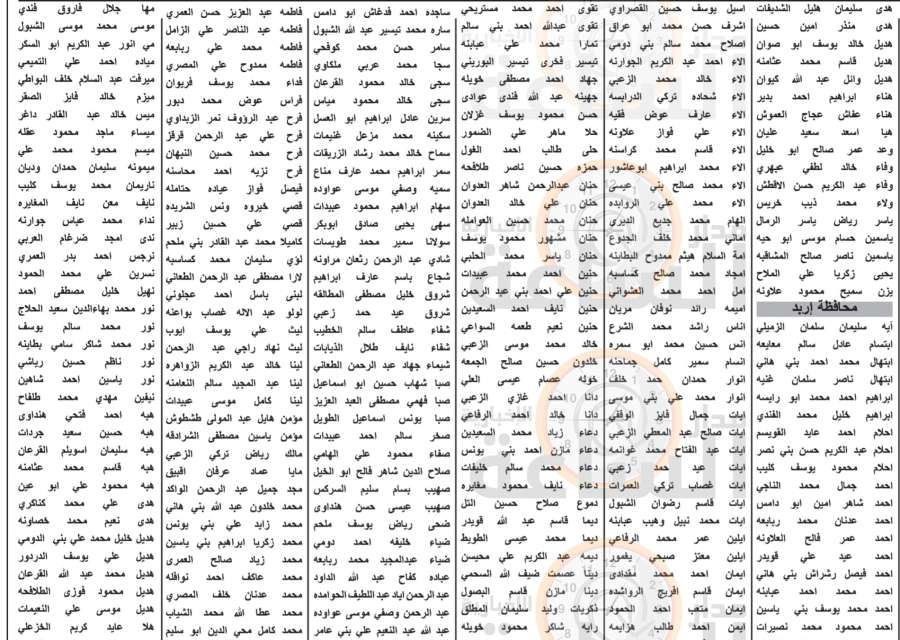 هدى سليمان هليل الشديفات
هدى منذر امين حسين
هديل خالد يوسف ابو صوان
هديل قاسم محمد عثامنه
هديل وائل عبد الله كيوان
هناء ابراهيم احمد بدير
هناء عفاش عجاج العموش
هيا اسعد سعيد عليان
وعد عمر صالح ابو خليل
وفاء خالد لطفي عبهري
وفاء عبد الكريم حسن الاقطش
ولاء محمد ذيب خريس
ياسر رياض ياسر الرمال
ياسمين حسام موسى ابو حيه
ياسمين ناصر صالح المشاقبه
يحيى زكريا علي الملاح
يزن سميح محمود علاونه
محافظة إربد
آيه سليمان سلمان الزميلي
ابتسام عادل سالم معايعه
ابتهال محمد احمد بني هاني
ابتهال ناصر سلمان غنيه
ابراهيم احمد محمد ابو رايسه
ابراهيم خليل محمد القندي
احلام احمد عايد القويسم
احلام عبد الكريم حسن بني نصر
احلام محمود يوسف كليب
احمد جمال محمد الناجي
احمد شاهر امين ابو دامس
احمد عدنان محمد ربابعه
احمد عمر فالح العلاونه
احمد عيد علي قويدر
احمد فيصل رشراش بني هاني
احمد محمد احمد عبابنه
احمد محمد يوسف بني ياسين
احمد محمود محمد نصيرات
اسيل يوسف حسين القصراوي
اشرف حسن محمد ابو عراق
اصلاح محمد سالم بني دومي
الاء احمد عبد الكريم الجوارنه
الاء خالد محمد الزعبي
الاء شحاده تركي الدرابسه
الاء عارف عوض فقيه
الاء علي فواز علاونه
الاء قاسم محمد كراسنه
الاء محمد ابراهيم ابوعاشور
الاء محمد صالح بني عيسى
الاء محمد علي الروابده
الهام محمد جديع الديري
اماني محمد خلف الجدوع
امة السلام هيثم ممدوح البطاينه
امجاد محمد صالح كساسبه
امل احمد محمد العشواني
اميمه رائد نوفان مريان
اناس راشد محمد الشرع
انس حسين محمد ابو سمره
انسام سمير كامل جماحنه
انوار حمدان حمد خلف
انوار محمد علي بني موسى
ايات جمال فايز الوقفي
ايات صالح عبد المعطي الزعبي
ايات عبد الفتاح محمد غوانمه
ايات عبد حمد زعبي
ايات غصاب تركي العمرات
ايات قاسم رضوان الشبول
ايات محمد نبيل وهيب عبابنه
ايلين عمر محمد الرفاعي
ايلين معتز صبحي يغمور
ايمان احمد محمد بغدادي
ايمان قاسم افريج الرواشده
ايمان متعب احمد الحمود
ايمن احمد طالب هزايمه
تقوى احمد محمد مستريحي
تقوى عبدالله احمد بني سالم
تمارا محمد علي عبابنه
تيسير فخري تيسير البوريني
جهاد احمد مصطفى خويله
جهينه عبد الله فندي عوادي
حسن محمود يوسف غزلان
حلا ماهر علي الضمور
حلى طالب احمد الغول
حمزه حسين ناصر طلافحه
حنان عبدالرحمن شاهر العدوان
حنان علي خالد العدوان
حنان محمد حسين العوامله
حنان مشهور محمود يوسف
حنان ياسر محمد الحلبي
حنين احمد محمد عبيدات
حنين علي احمد بني عبد الرحمن
حنين نايف احمد السعيدين
حنين نعيم طعمه السواعي
خالد محمد موسى الزعبي
خلدون حسين صالح الجمعه
خوله عصام عيسى العلي
دانا احمد غازي الزعبي
دانا خالد احمد الرفاعي
دعاء زياد محمد السعيدين
دعاء مازن احمد بني يونس
دعاء محمد سالم خليفات
دعاء نايف محمود مغايره
دموع صلاح حسين التل
ديما قاسم عبد الله قويدر
ديما محمد عيسى الطويط
ديمه عبد الكريم علي محيسن
دينا عصمت ضيف الله السحمي
دينا مازن قاسم البصول
ذكريات وليد سليمان المطلق
رايه شاكر محمود خويله
ساجده احمد فدغاش ابو دامس
ساره محمد تيسير عبد الله الشبول
سامر حسن محمد كوفحي
سجا محمد عربي ملكاوي
سجى خالد محمود القرعان
سجى خالد محمود مياس
سرين عادل ابراهيم ابو العسل
سكينه محمد مزعل غنيمات
سماح خالد محمد رشاد الزريقات
سمر ابراهيم محمد عارف مناع
سميه وصفي موسى عواوده
سهام ابراهيم محمود عبيدات
سهى يحيى صادق ابوبكر
سولانا سمير محمد طويسات
شادي عبد الرحمن رثعان مراونه
شجاع باسم عارف ابراهيم
شروق خليل مصطفى المطالقه
شروق عيد حمد زعبي
شفاء عاطف سالم الخطيب
شفاء نايف طلال الذيابات
شيماء جهاد عبد الرحمن الطعاني
صبا شهاب حسين ابو اسماعيل
صبا فهمي مصطفى العبد العزيز
صبا يونس اسماعيل الطويل
صخر سالم احمد عبيدات
صفاء محمود علي الهامي
صلاح الدين شاهر فالح ابو الخيل
صهيب بسام سليم السركس
صهيب عيسى حسن هنداوى
ضحى رياض يوسف ملحم
ضياء خليفه احمد دومي
ضياء عبدالمجيد محمد ربابعه
عباده كفاح عبد الله الداود
عبد الرحمن اياد عبد اللطيف الحوامده
عبد الرحمن وصفي موسى عواوده
عبد الله عبد النعيم علي بني عامر
فاطمه عبد العزيز حسن العمري
فاطمه عبد الناصر علي الزامل
فاطمه محمد علي ربابعه
فاطمه ممدوح علي المصري
فداء محمد يوسف فريوان
فراس عوض محمد دبور
فرح عبد الرؤوف نمر الزبداوي
فرح علي عبد الرحمن قرقز
فرح محمد حسين النبهان
فرح نزيه احمد محاسنه
فيصل فواز عباده حتامله
قصي خيروه ونس الشريده
قصي علي حسين زبير
كاميلا محمد عبد القادر بني ملحم
لؤي سليمان محمد كساسبه
لارا مصطفى عبد الرحمن الطعاني
لبنى باسل احمد عجلوني
لولو عبد الاله غصاب بواعنه
ليث علي يوسف ايوب
ليث نهاد راجي عبد الرحمن
لينا خالد عبد الكريم الزواهره
لينا عبد المجيد سالم النعامنه
لينا كامل موسى عبيدات
مؤمن هايل عبد المولى طشطوش
مؤمن ياسين مصطفى الشرادقه
مالك رياض تركي الزعبي
مايا عماد عرفان افيبق
مجد جميل عبد الرحمن الواكد
محمد خلدون عبد الله بني هاني
محمد زايد علي بني يونس
محمد زكريا ابراهيم بني ياسين
محمد زياد صالح العمري
محمد عاكف احمد نوافله
محمد عدنان خلف المصري
محمد عطا الله محمد الشياب
محمد كامل محي الدين ابو سليم
مها جلال فاروق فندي
موسى محمد موسى الشبول
مي انور عبد الكريم ابو السكر
مياده احمد علي التميمي
ميرفت عبد السلام خلف البواطي
ميزم خالد فايز الصقر
ميس خالد عبد القادر داغر
ميساء ماجد محمود عقله
ميسم محمود محمد علي
ميمونه سليمان حمدان وديان
ناريمان محمد يوسف كليب
نايف معن نايف المغايره
نداء محمد عباس جوارنه
ندى امجد ضرغام العربي
نرجس احمد بدر العمري
نسرين علي محمد الحمود
نهيل خليل مصطفى احمد
نور محمد بهاءالدين سعيد الحلاج
نور محمد سالم يوسف
نور محمد شاكر سامي بطاينه
نور ناظم حسين رياشي
نور ياسين احمد شاهين
نيفين مهدي محمد طلفاح
هبه احمد فتحي هنداوى
هبه حسين سعيد جردات
هبه سليمان اسويلم القرعان
هبه قاسم محمد عثامنه
هبه محمود علي ابو عين
هدى علي محمد كناكري
هدى نعيم محمد خصاونه
هديل خليل محمد علي بني الدومي
هديل علي يوسف الدردور
هديل محمد عبد الله القرعان
هديل محمود فوزي الطلافحه
هديل موسى علي النعيمات
هلا عايد كريم الخزعلي